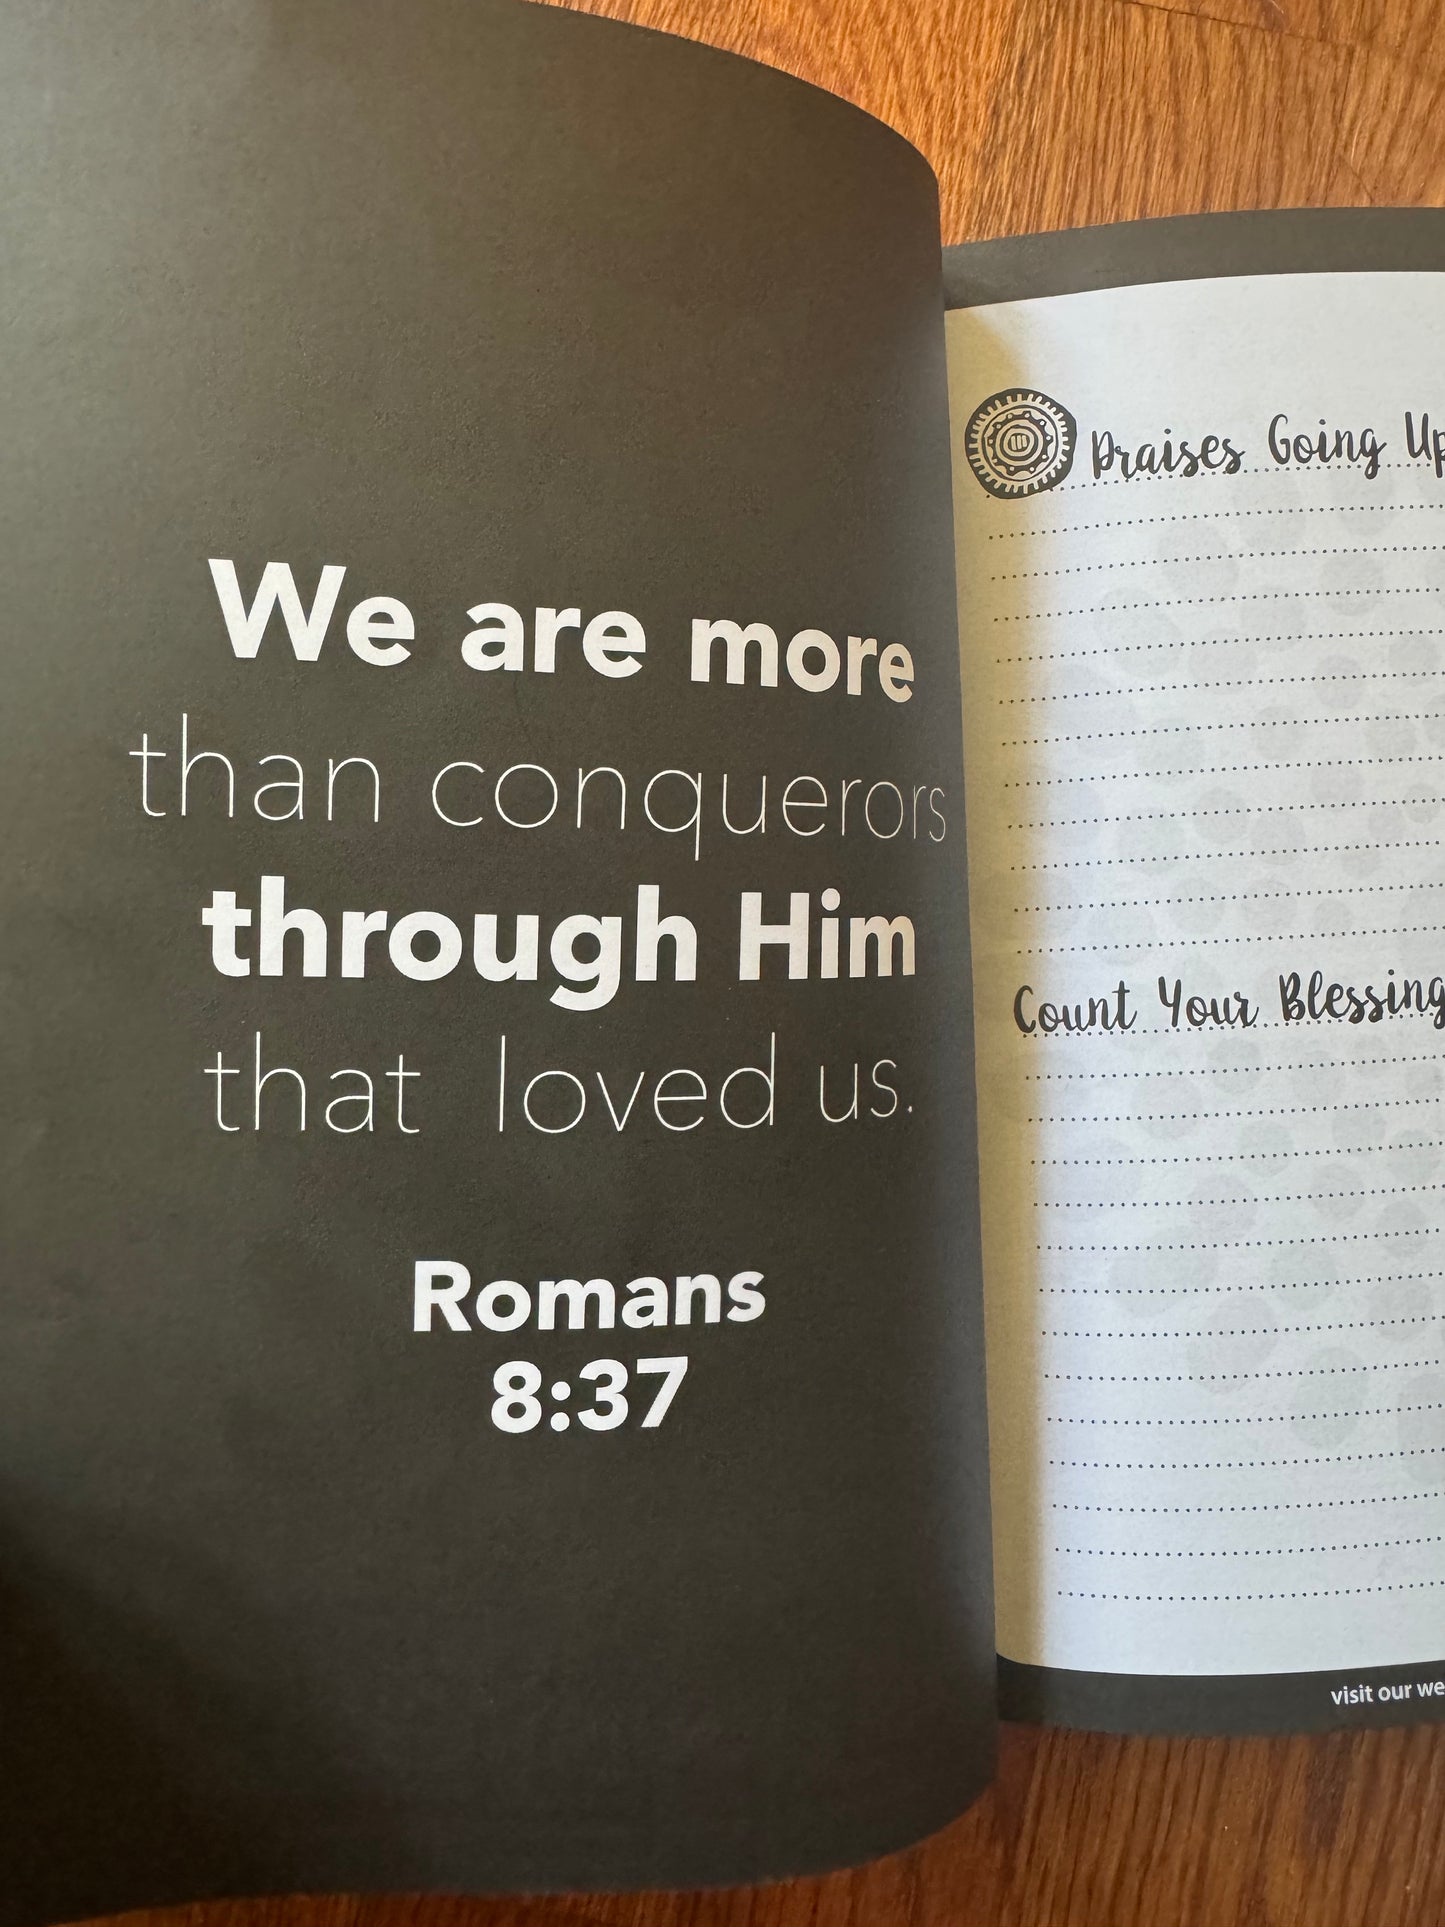 We are more
than conquerors
through Him
that loved us.
Romans
8:37
Praises Going Up
Count Your Blessing
visit our we